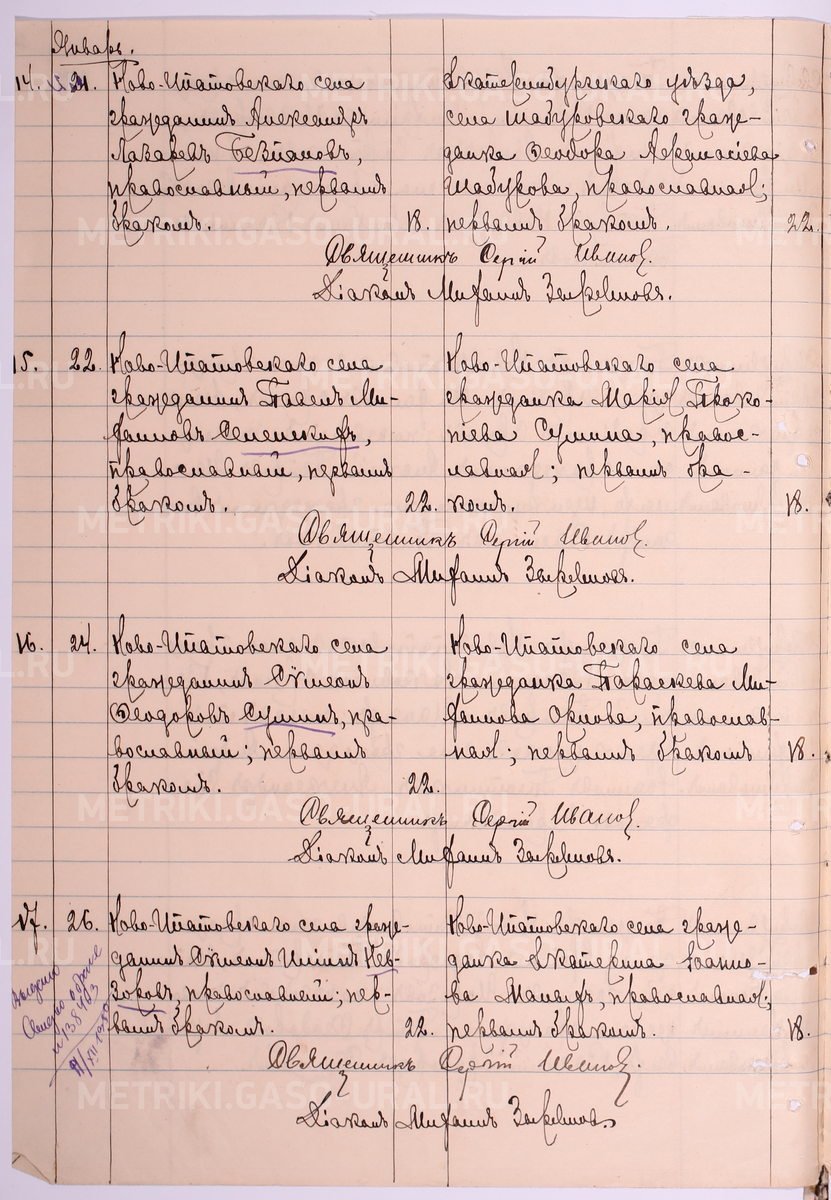 Январь.
14. 21. Ново-Ипатовскаго села
гражданинъ Александръ
Лазаревъ Безпаловъ,
православный, первымъ
бракомъ. 18.
Екатеринбургскаго уѣзда,
села Шабуровскаго граж-
данка Ѳеодора Аѳанасіева
Шабурова, православная;
первымъ бракомъ. 22.
Священникъ Сергій Ивановъ.
Діаконъ
15. 22. Ново-Ипатовскаго села
гражданинъ Павелъ Ми-
православный, первымъ
бракомъ. 22.
Ново-Ипатовскаго села
гражданка Марія Проко-
піева Сумина, правос-
лавная; первымъ бра-
комъ. 18.
Священникъ Сергій Ивановъ.
Діаконъ
16. 24. Ново-Ипатовскаго села
гражданинъ Сѵмеонъ
Ѳеодоровъ Суминъ, пра-
вославный; первымъ
бракомъ. 22.
Ново-Ипатовскаго села
гражданка Параскева Ми-
Орлова, православ-
ная; первымъ бракомъ 18.
Священникъ Сергій Ивановъ.
Діаконъ
17. 26. Ново-Ипатовскаго села граж-
данинъ Сѵмеонъ Иліинъ Нев-
зоровъ, православный; пер-
вымъ бракомъ. 22.
Ново-Ипатовскаго села граж-
данка Екатерина Іоанно-
ва православная;
первымъ бракомъ. 18.
Священникъ Сергій Ивановъ.
Діаконъ
METRIKI.GASO-URAL.RU